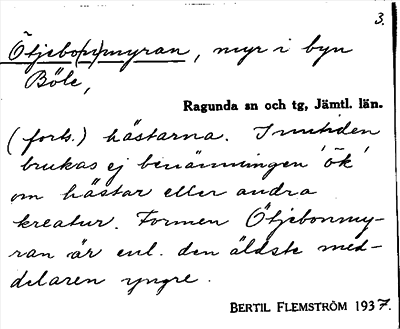 3.
Ötjebo(n)myran, myr i byn
Böle,
Ragunda sn och tg, Jämtl. län.
(forts.) hästarna. I nutiden
brukas ej benämningen 'ök'
om hästar eller andra
kreatur. Formen Ötjebonmy-
ran är enl. den äldste med-
delaren yngre.
BERTIL FLEMSTRÖM 1937.